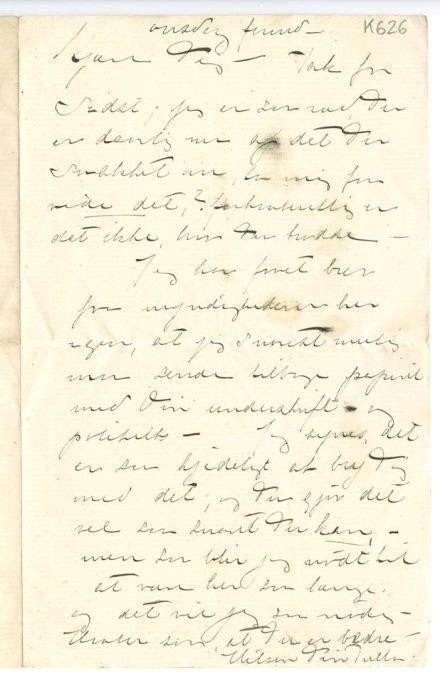 onsdag formd - K626
Kjære Dig - Tak for
Sidst; jeg er saa ræd, Du
er daarlig nu og det Du
snakket om, la mig faa
vide det,? er
det ikke, hvis Du trodde -
Jeg har faaet brev
fra myndighederne her
igjen, at jeg snarest mulig
maa sende tilbage papiret
med Din underskrift - og
politiets - Jeg synes, det
er saa kjedeligt at bry Dig
med det, og Du gjør det
vel saa snart Du kan, -
men saa blir jeg nødt til
at være her saa længe.
og det vil jeg saa nødig -
saa, at Du er bedre -
Hilsen Din Tulla.